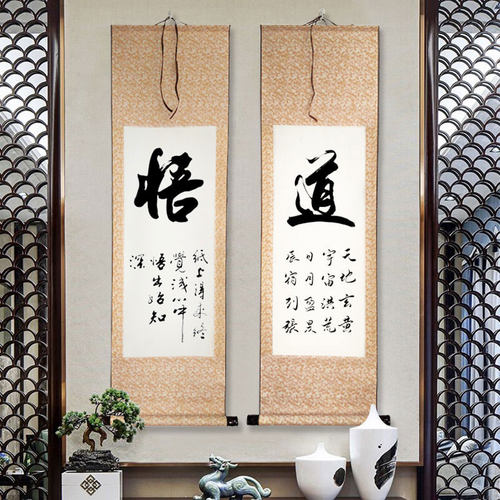 悟
紙上得来終
覺淺心中
悟出始知
深
道
天地玄黄
宇宙洪荒
日月盈昃
辰宿列張